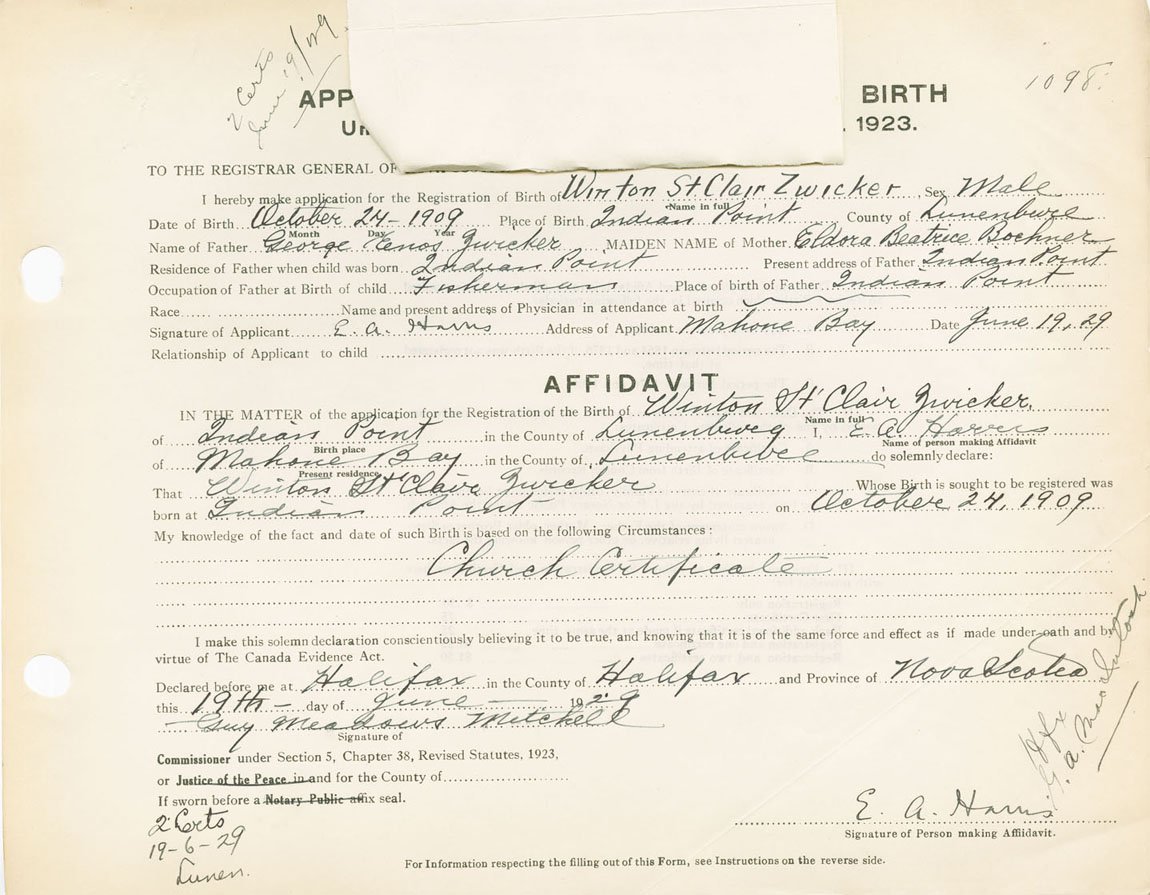 2 Certs
June 19/29
1098.
APP BIRTH
. 1923.
TO THE REGISTRAR GENERAL OF
I hereby make application for the Registration of Birth of Winton St Clair Zwicker Sex Male
Name in full
Date of Birth October 24 - 1909 Place of Birth Indian Point County of Lunenburg
Month Day Year
Name of Father George Enos Zwicker MAIDEN NAME of Mother Eldora Beatrice Bochner
Residence of Father when child was born Indian Point Present address of Father Indian Point
Occupation of Father at Birth of child Fisherman Place of birth of Father Indian Point
Race Name and present address of Physician in attendance at birth
Signature of Applicant E. A. Harris Address of Applicant Mahone Bay Date June 19, 29
Relationship of Applicant to child
AFFIDAVIT
IN THE MATTER of the application for the Registration of the Birth of Winton St Clair Zwicker,
Name in full
of Indian Point in the County of Lunenburg I, E. A. Harris
Birth place Name of person making Affidavit
of Mahone Bay in the County of Lunenburg do solemnly declare:
Present residence
That Winton St Clair Zwicker Whose Birth is sought to be registered was
born at Indian Point on October 24, 1909
My knowledge of the fact and date of such Birth is based on the following Circumstances:
Church Certificate
I make this solemn declaration conscientiously believing it to be true, and knowing that it is of the same force and effect as if made under oath and by
virtue of The Canada Evidence Act.
Declared before me at Halifax in the County of Halifax and Province of Nova Scotia
this 19th - day of June 1929
Guy Meadows Mitchell
Signature of
Commissioner under Section 5, Chapter 38, Revised Statutes, 1923,
or Justice of the Peace in and for the County of
If sworn before a Notary Public affix seal.
2 Certs
19-6-29
Lunen.
G. A. MacIntosh
E. A. Harris
Signature of Person making Affiidavit.
For Information respecting the filling out of this Form, see Instructions on the reverse side.